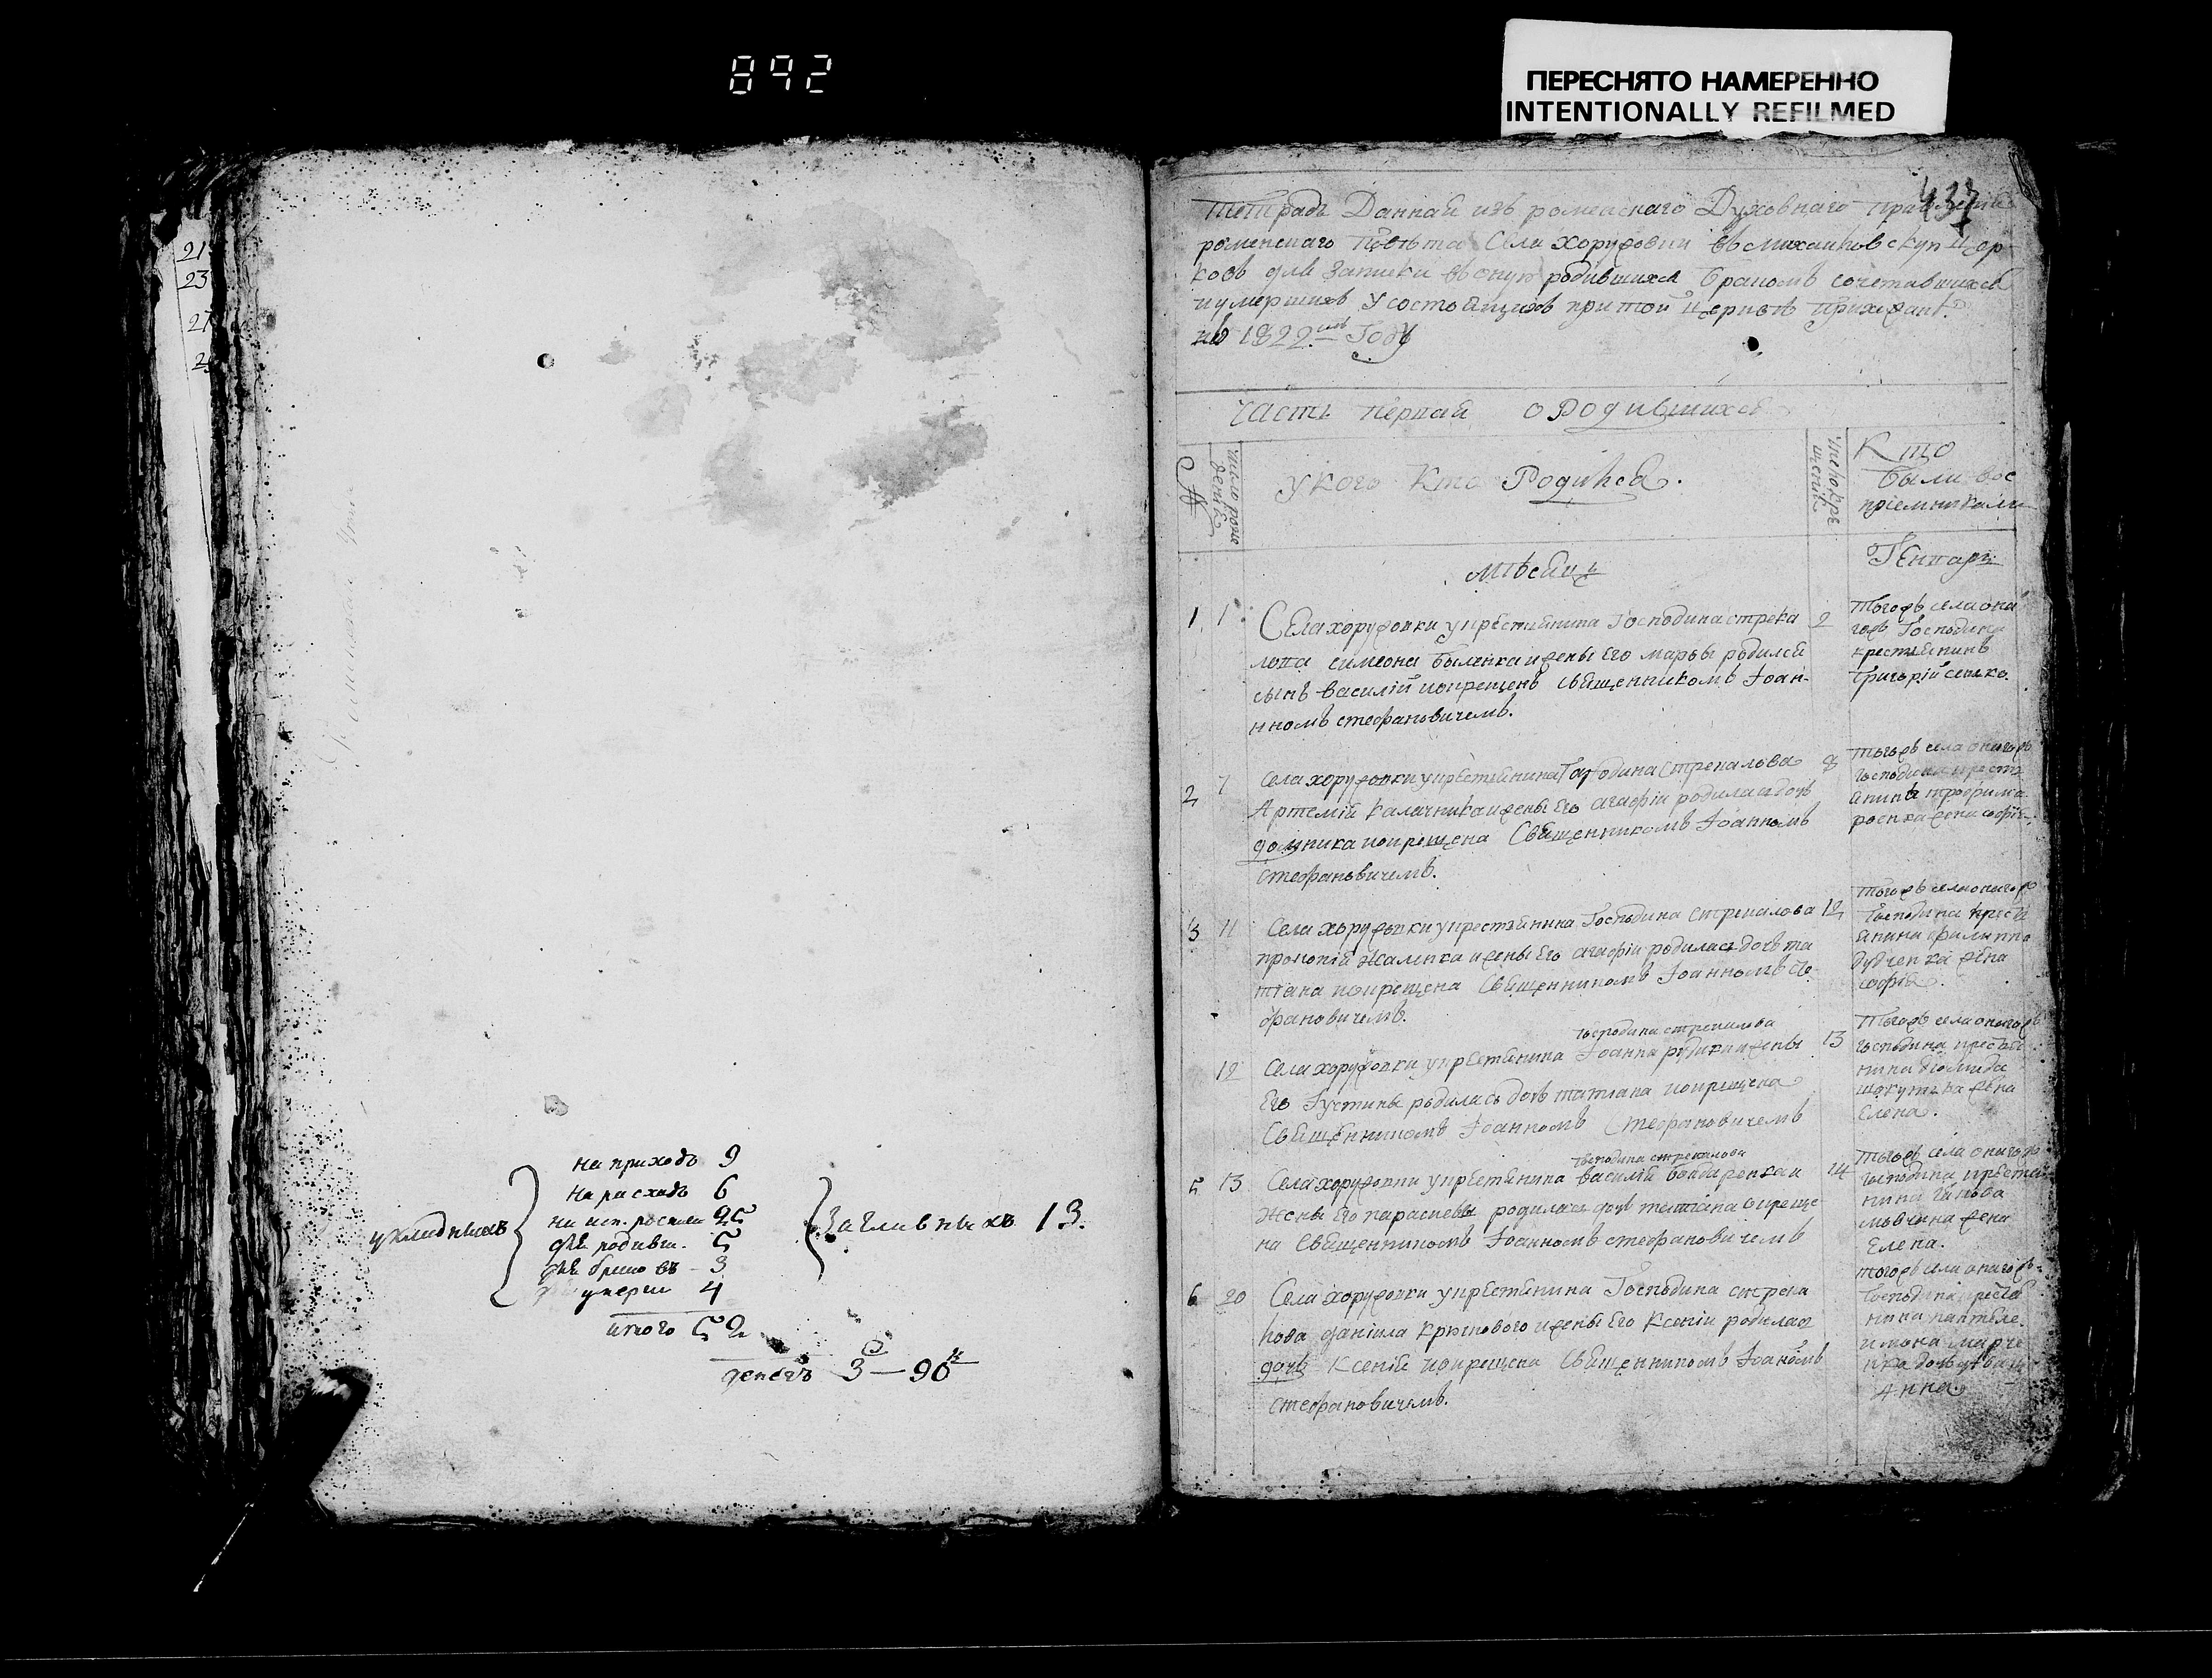 892
ПЕРЕСНЯТО НАМЕРЕННО
INTENTIONALLY REFILMED
21
23
27
на приходъ 9
на расходъ 6
на исп. роспис 25
для родивш. 5
для браковъ - 3
умерш 4
итого 52
Заглавныхъ 13.
денегъ 3 — 90 к
437
Тетрадь Данная изъ роменскаго Духовнаго правленія
роменскаго повѣта Села хоружовки въ михайловскую цер
ковъ для записки въ оную родившихся бракомъ сочетавшихся
иумершихъ у состоящихъ притой церквѣ прихожанъ
въ 1822 мъ Году
часть первая о Родившихся
№
число рожденія
у кого Кто Родился.
число крещенія
Кто
были вос
пріемниками
мѣсяцъ
Генваръ
1 1 Села хоружовки укрестянина Господина стрека
лова симеона ижены Его марѳы родился
сынъ василій икрещенъ священникомъ Іоан-
нномъ стефановичемъ.
2
тогожъ села она
гожъ Господина
крестянинъ
Григорій
2 7 Села хоружовки укрестянина Гасподина Стрекалова
Артемія калачника ижены Его агафіи родилась дочь
домника икрещена Священникомъ Іоанномъ
стефановичемъ.
8
тогожъ села оногожъ
господина крестя
янина трофима
жена софія
3 11 Села хоружовки укрестянина Господина стрекалова
прокопія ижены Его агафіи родилась дочь та
тіана икрещена Священникомъ Іоанномъ сте
фановичемъ.
12
тогожъ села оногожъ
Господина крестя
янина филиппа
жена
софія.
господина стрекалова
12 Села хоружовки укрестянина Іоанна ижены
Его Іустины родилась дочь татіана икрещена
Священникомъ Іоанномъ Стефановичемъ
13
тогожъ села оногожъ
господина крестья
нина діомида
жена
Елена.
господина стрекалова
5 13 Села хоружовки укрестянина василія бондаренка и
жены Его параскевы родилась дочь татіана окреще
на Священникомъ Іоанномъ стефановичемъ
14
тогожъ села оногожъ
господина крестья
нина
жена
Елена.
6 20 Села хоружовки укрестянина Господина стрека
лова даніила ижены Его Ксеніи родилась
дочь Ксенія икрещена Священникомъ Іоаномъ
стефановичемъ.
тогожъ села оногожъ
Господина крестья
нина пантеле
имона марче
нка дочь
Анна